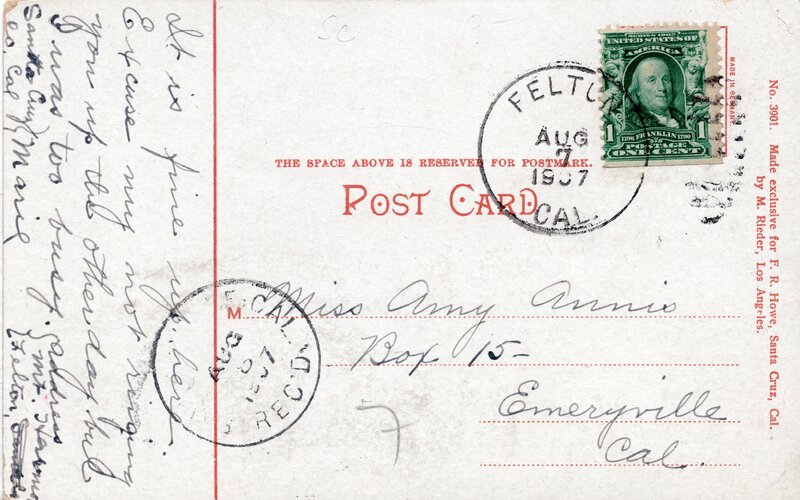 It is fine up here.
Excuse my not ringing
you up the other day but
I was too busy. address
Marie
Mt. Hermon
Felton,
Santa Cruz
co. Cal.
SC
SERIES 1902
UNITED STATES OF
AMERICA
1706 FRANKLIN 1790
1 POSTAGE 1
ONE CENT
MADE IN GERMANY
FELTON
AUG
7
1907
CAL.
THE SPACE ABOVE IS RESERVED FOR POSTMARK.
POST CARD
M. Miss Amy Annis
Box 15-
Emeryville
Cal.
CAL.
AUG
1907
REC'D
7
No. 3901. Made exclusive for F. R. Howe, Santa Cruz, Cal.
by M. Rieder, Los Angeles.